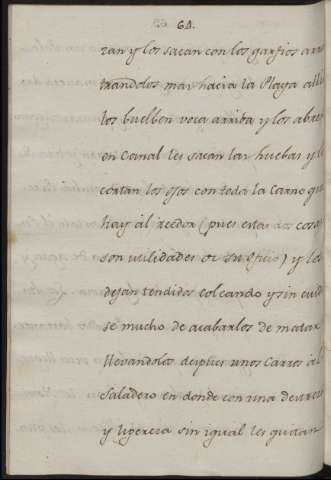 64.
zan y los sacan con los garfios arras
trandolos mas hacia la Playa alli
los buelben voca arriba y los abren
en Canal les sacan las huebas y le
cortan los ojos con toda la Carne que
hay al rededor (pues estas dos cosas
son utilidades de su oficio) y los
dejan tendidos coleando y sin cuidar
se mucho de acabarlos de matar
llevandolos despues unos Carros al
Saladero en donde con una destreza
y ligereza sin igual les quitan